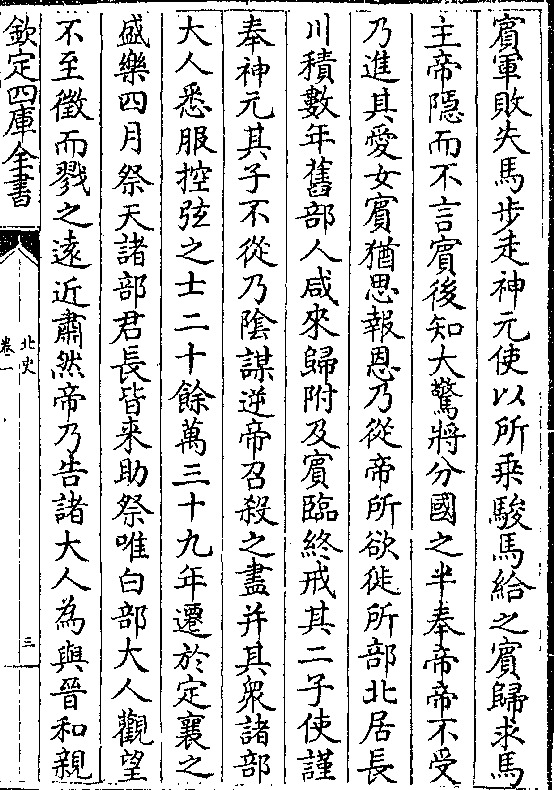 賓軍敗失馬步走神元使以所乘駿馬給之賓歸求馬
主帝隠而不言賓後知大驚將分國之半奉帝帝不受
乃進其愛女賓猶思報恩乃從帝所欲徙所部北居長
川積數年舊部人咸來歸附及賓臨終戒其二子使謹
奉神元其子不從乃陰謀逆帝召殺之盡并其衆諸部
大人悉服控弦之士二十餘萬三十九年遷於定襄之
盛樂四月祭天諸部君長皆来助祭唯白部大人觀望
不至徵而戮之遠近肅然帝乃告諸大人為與晉和親
欽定四庫全書
北史
卷一
三